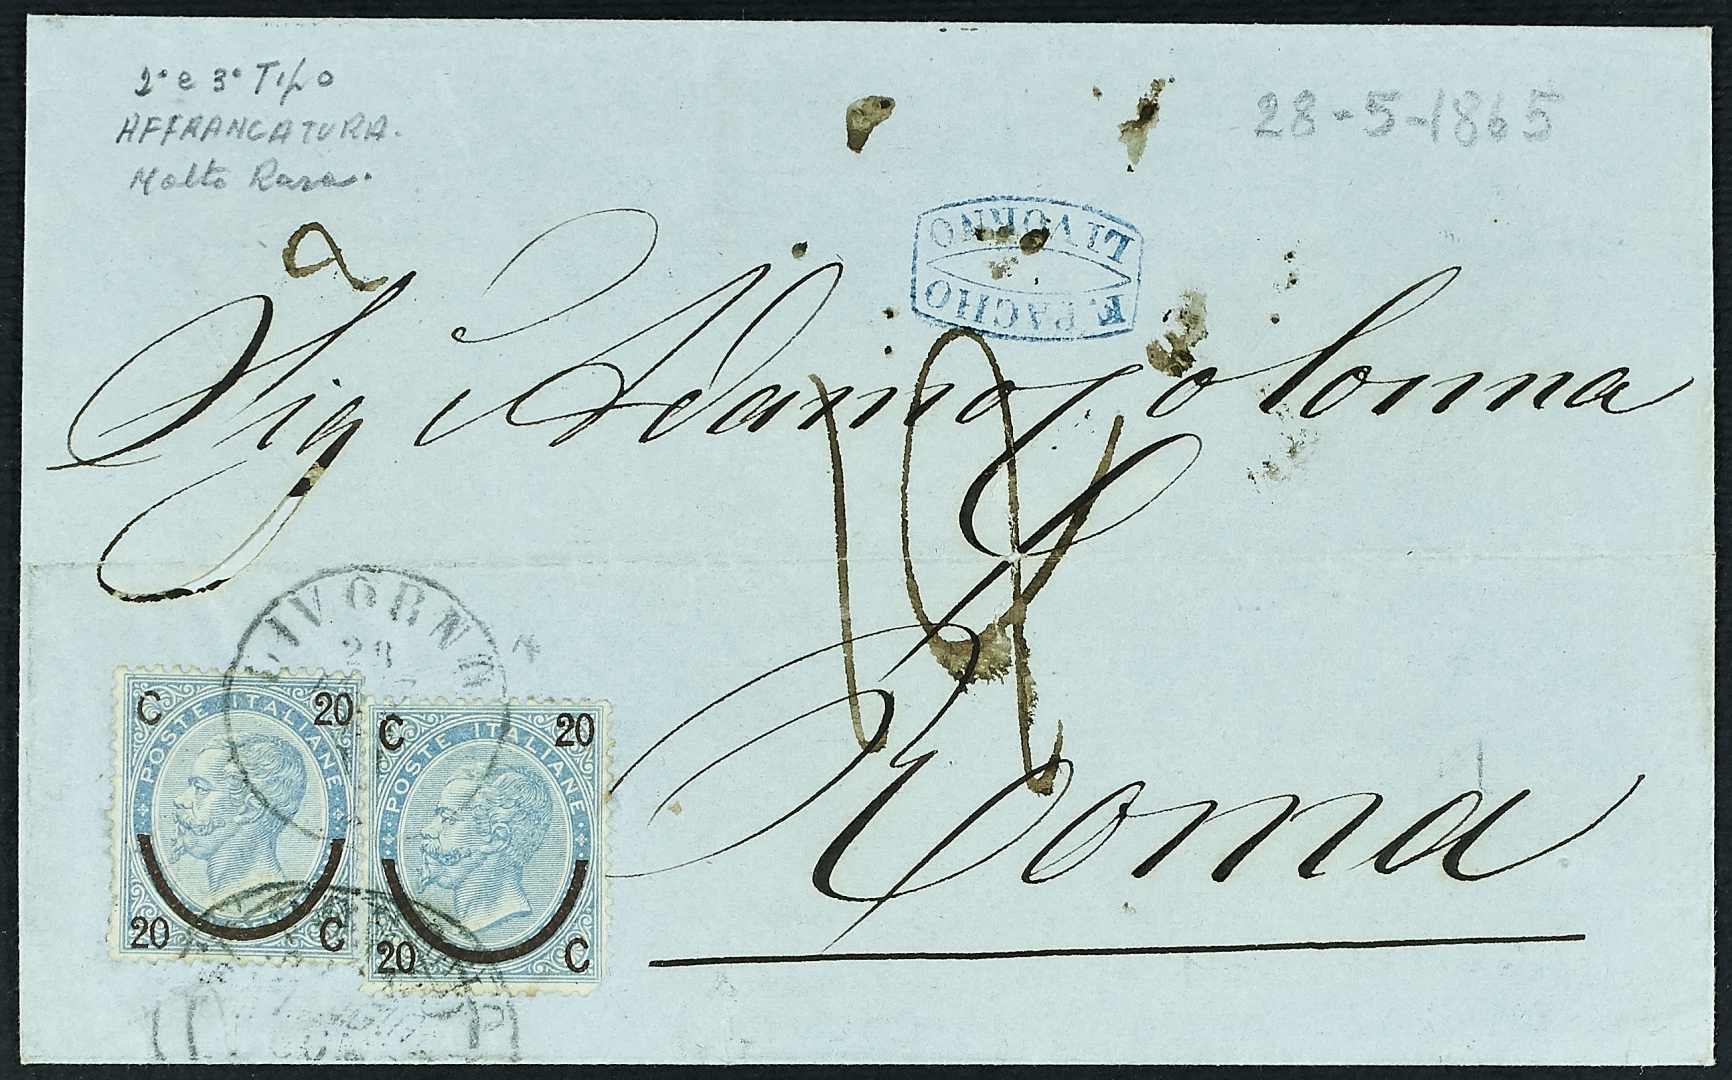 2° e 3° Tipo
AFFRANCATURA.
Molto Rara.
28-5-1865
LIVORNO
F. PACHO
Sig Adamo Colonna
Roma
LIVORNO
28
C 20
POSTE ITALIANE
20 C
C 20
POSTE ITALIANE
20 C